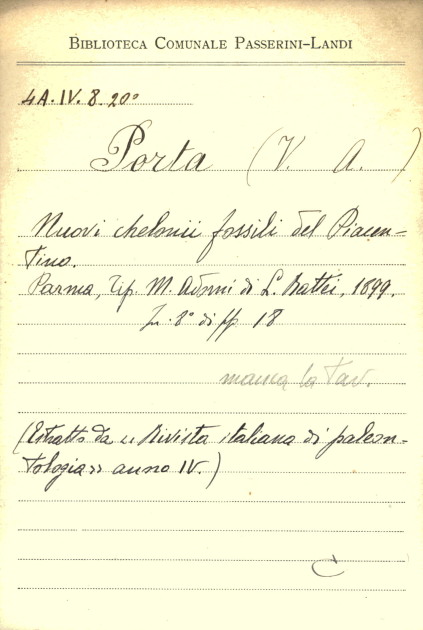 BIBLIOTECA COMUNALE PASSERINI-LANDI
4A.IV.8.20°
Porta (V. A.)
Nuovi chelonii fossili del Piacen-
tino.
Parma, Tip. M. Adorni di L. Battei, 1899.
In 8° di pp. 18
manca la tav.
(Estratto da « Rivista italiana di paleon-
tologia » anno IV.)
C